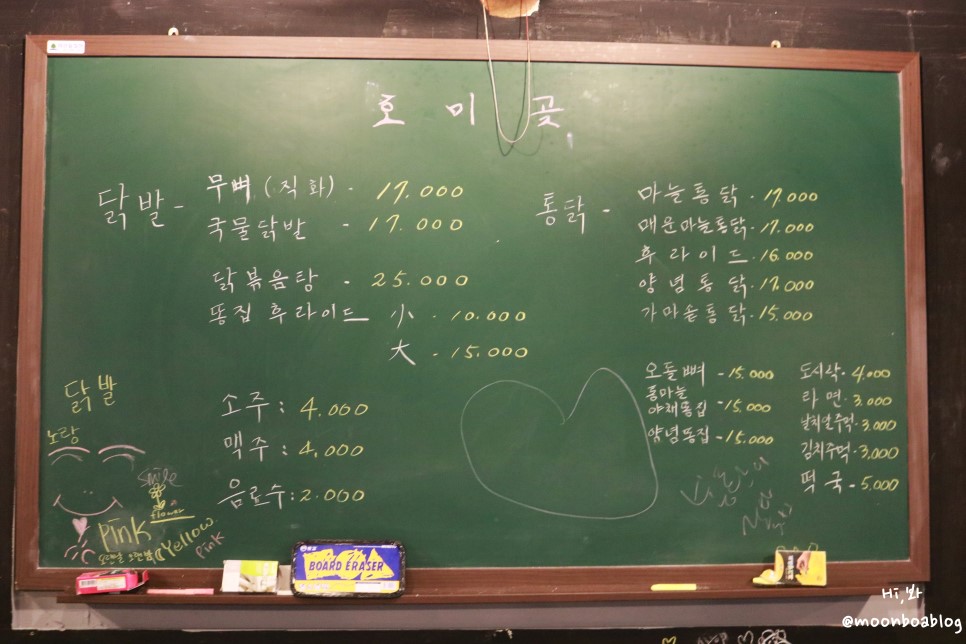 호미곶
닭발 - 무뼈 (직화) - 17.000
국물닭발 - 17.000
닭볶음탕 - 25.000
똥집 후라이드 小 - 10.000
大 - 15.000
통닭 - 마늘통닭 - 17.000
매운마늘통닭 - 17.000
후라이드 - 16.000
양념통닭 - 17.000
가마솥통닭 - 15.000
오돌뼈 - 15.000
통마늘
야채똥집 - 15.000
양념똥집 - 15.000
도시락 - 4,000
라면 - 3,000
날치알주먹 - 3,000
김치주먹 - 3,000
떡국 - 5,000
소주 : 4.000
맥주 : 4,000
음료수 : 2.000
닭발
노랑
smile
flower
Pink
Yellow
Pink
BOARD ERASER
Hi,봐
@moonboablog